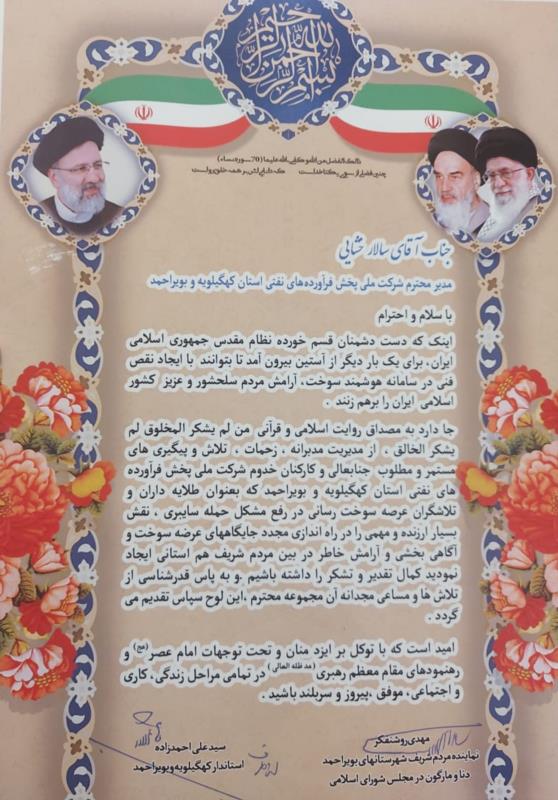 بسم الله الرحمن الرحیم
ذالک الفضل من الله و کفی بالله علیما (70 سوره نساء)
چنین فضلی از سوی یکتا خداست که دانایی‌اش بر همه خلق رواست
جناب آقای سالار خشایی
مدیر محترم شرکت ملی پخش فرآورده‌های نفتی استان کهگیلویه و بویراحمد
با سلام و احترام
اینک که دست دشمنان قسم خورده نظام مقدس جمهوری اسلامی
ایران، برای یک بار دیگر از آستین بیرون آمد تا بتوانند با ایجاد نقص
فنی در سامانه هوشمند سوخت، آرامش مردم سلحشور و عزیز کشور
اسلامی ایران را برهم زنند .
جا دارد به مصداق روایت اسلامی و قرآنی من لم یشکر المخلوق لم
یشکر الخالق ، از مدیریت مدبرانه ، زحمات ، تلاش و پیگیری های
مستمر و مطلوب جنابعالی و کارکنان خدوم شرکت ملی پخش فرآورده
های نفتی استان کهگیلویه و بویراحمد که بعنوان طلایه داران و
تلاشگران عرصه سوخت رسانی در رفع مشکل حمله سایبری ، نقش
بسیار ارزنده و مهمی را در راه اندازی مجدد جایگاههای عرضه سوخت و
آگاهی بخشی و آرامش خاطر در بین مردم شریف هم استانی ایجاد
نمودید کمال تقدیر و تشکر را داشته باشیم .و به پاس قدرشناسی از
تلاش ها و مساعی مجدانه آن مجموعه محترم ،این لوح سپاس تقدیم می
گردد .
امید است که با توکل بر ایزد منان و تحت توجهات امام عصر(عج) و
رهنمودهای مقام معظم رهبری (مد ظله العالی) در تمامی مراحل زندگی، کاری
و اجتماعی، موفق ،پیروز و سربلند باشید .
مهدی روشنفکر
نماینده مردم شریف شهرستانهای بویراحمد
دنا و مارگون در مجلس شورای اسلامی
سید علی احمدزاده
استاندار کهگیلویه و بویراحمد